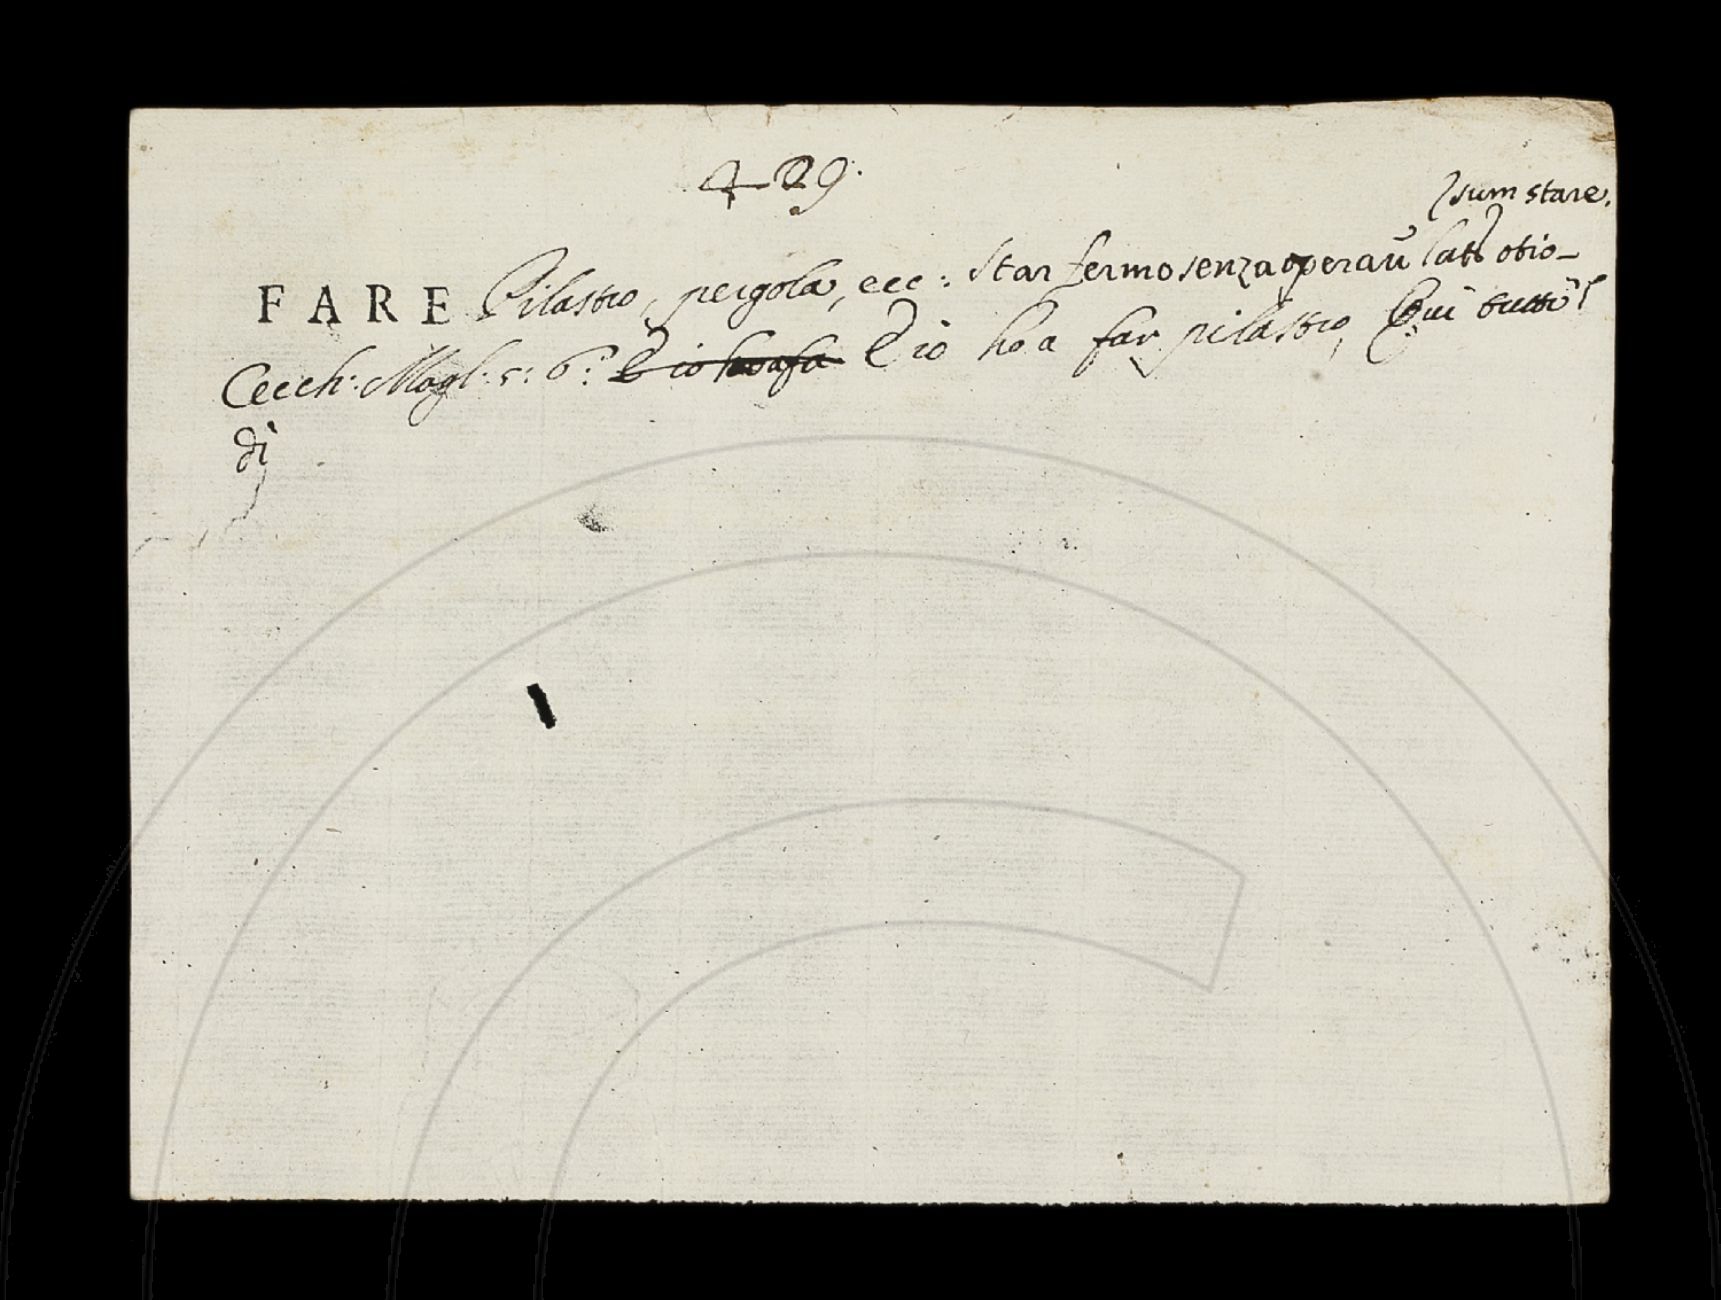 429.
sum stare.
FARE Pilastro, pergola, ecc: Star fermo senza operaũ lat. otio-
Cecch: Magl: 5: 6: E io ho a fa E io ho a far pilastro, Qui tutto 'l
dì